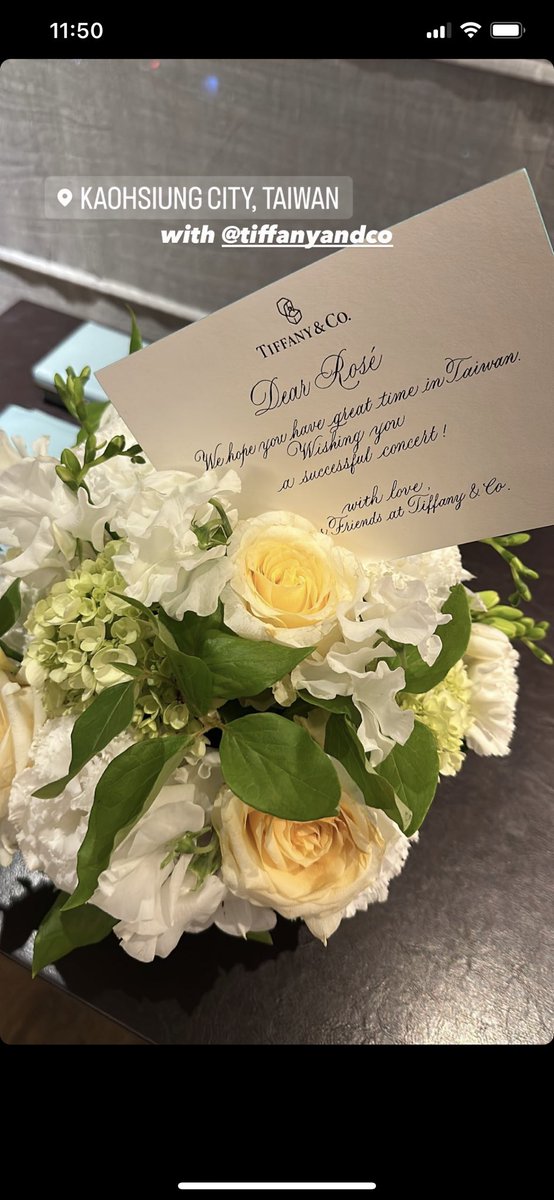 11:50
KAOHSIUNG CITY, TAIWAN
with @tiffanyandco
TIFFANY & CO.
Dear Rosé
We hope you have great time in Taiwan.
Wishing you
a successful concert!
with love,
Friends at Tiffany & Co.